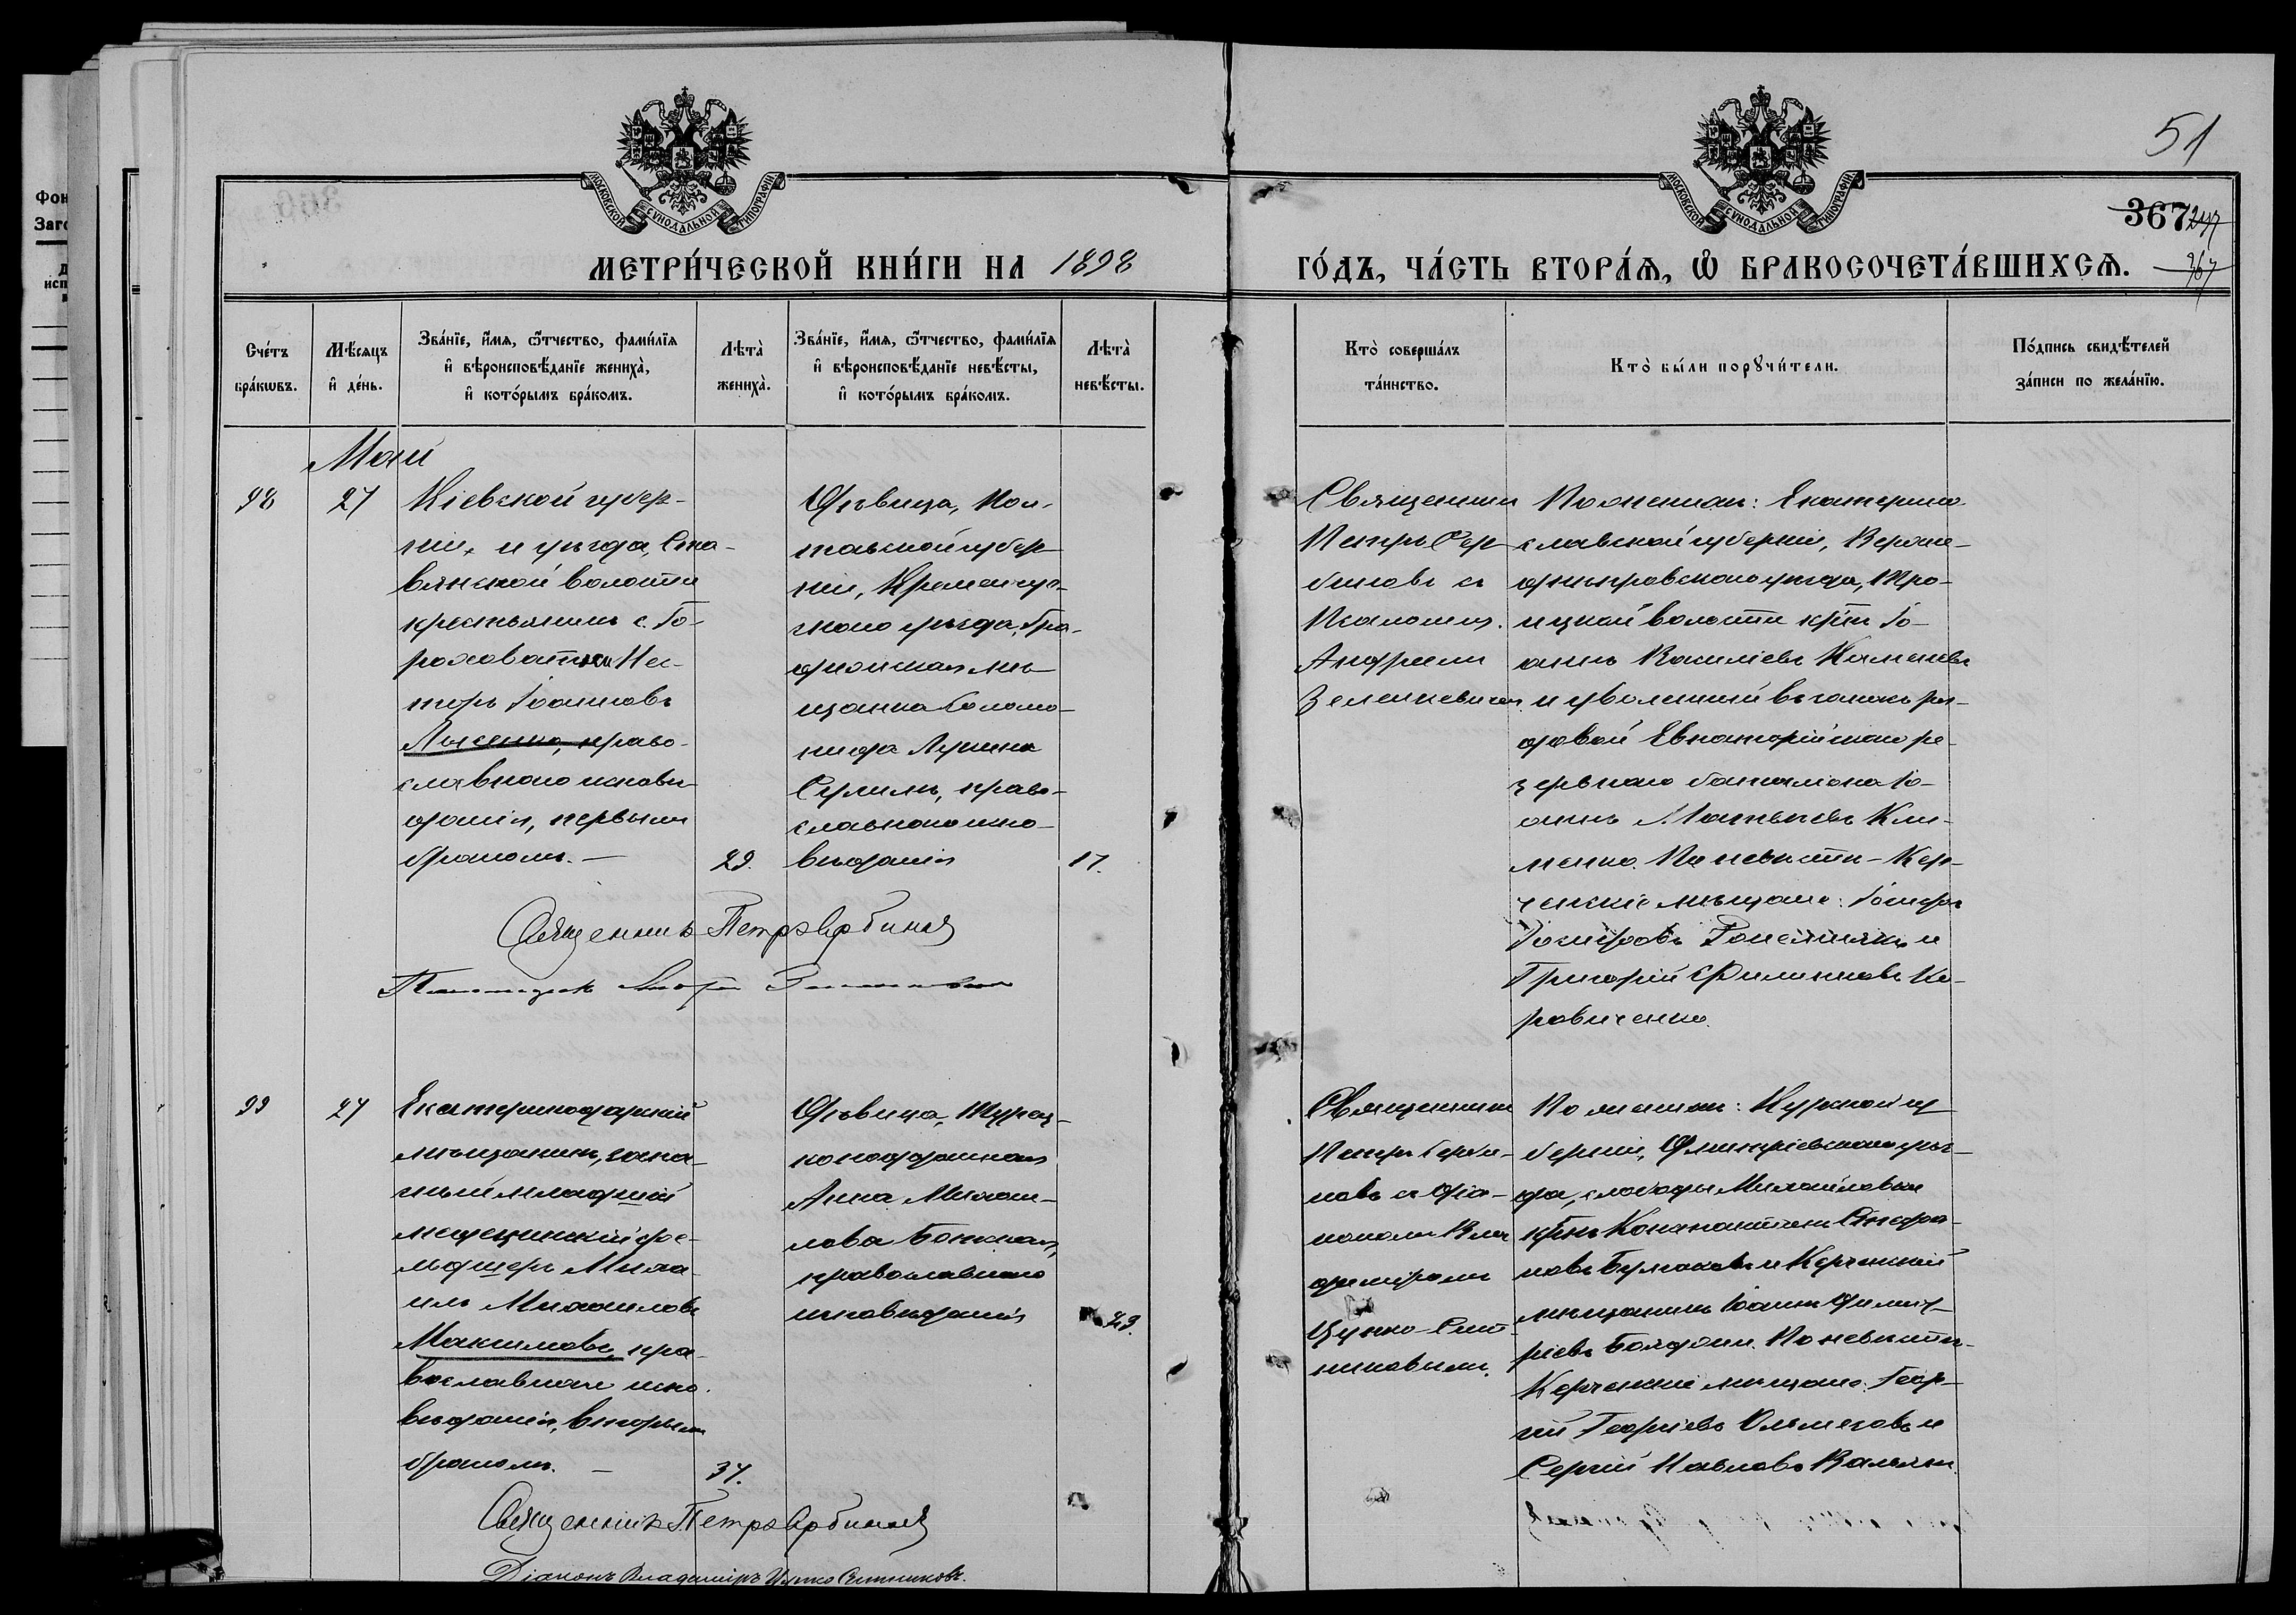 51
367
МОСКОВСКОЙ СѴНОДАЛЬНОЙ ТИПОГРАФІИ
МОСКОВСКОЙ СѴНОДАЛЬНОЙ ТИПОГРАФІИ
МЕТРИ́ЧЕСКОЙ КНИ́ГИ НА 1898
ГО́ДЪ, ЧА́СТЬ ВТОРА́Я, Ѽ БРАКОСОЧЕТА́ВШИХСЯ.
367
Сче́тъ бра́кѡвъ.
Мѣ́сяцъ и҆ де́нь.
Зва́нїе, и҆́мя, ѻ҆́тчество, фами́лїя и҆ вѣроисповѣ́данїе жениха̀, и҆ кото́рымъ бра́комъ.
Лѣта̀ жениха̀.
Зва́нїе, и҆́мя, ѻ҆́тчество, фами́лїя и҆ вѣроисповѣ́данїе невѣ́сты, и҆ кото́рымъ бра́комъ.
Лѣта̀ невѣ́сты.
Кто̀ соверша́лъ та́инство.
Кто̀ бы́ли порꙋчи́тели.
По́дпись свидѣ́телей за́писи по жела́нїю.
Май
98
27
Кіевской губер-
ніи, и уѣзда, Ста-
вянской волости
крестьянинъ с. Го-
роховатки Нес-
торъ Іоанновъ
Лысенко, право-
славнаго исповѣ
данія, первымъ
бракомъ. —
29.
Дѣвица, Пол-
тавской губер
ніи, Кременчуг-
скаго уѣзда, Гра-
дижская мѣ-
щанка Соломо-
нида Лукина
Сулима, право-
славнаго испо-
вѣданія
17.
Священникъ
Петръ Сер
биновъ съ
Псаломщ.
Андреемъ
Зеленкевичемъ.
По женихѣ: Екатерино-
славской губерніи, Верхне-
днѣпровскаго уѣзда, Тро-
ицкой волости крⷭ҇тн Іо-
аннъ Василіевъ Каменевъ
и уволенный въ запасъ ря-
довой Евпаторійскаго ре-
зервнаго баталіона Іо-
аннъ Матвѣевъ Кли-
менко. По невѣстѣ - Кер-
ченскіе мѣщане: Іосифъ
Іосифовъ и
Григорій Филипповъ Ки-
риченко.
Священникъ Петръ Сербиновъ
Псаломщикъ Андрей Зеленкевичъ
99
27
Екатеринодарскій
мѣщанинъ, запа-
сный младшій
медецинскій фе-
льдшеръ Миха-
илъ Михаиловъ
Максимовъ, пра-
вославнаго испо-
вѣданія, вторымъ
бракомъ. —
37.
Дѣвица, Турец-
коподданная
Анна Михаи-
лова
православнаго
исповѣданія
29.
Священникъ
Петръ Серби-
новъ съ діа-
кономъ Вла
диміромъ
Цупко-Сит-
никовымъ.
По женихѣ: Курской гу
берніи, Дмитріевскаго уѣз-
да, слободы Михайловки
крⷭ҇тн Константинъ Стефа-
новъ Булгаковъ и Керченскій
мѣщанинъ Іоаннъ Димит-
ріевъ По невѣстѣ-
Керченскіе мѣщане: Геор-
гій Георгіевъ и
Сергій Павловъ
Священникъ Петръ Сербиновъ
Діаконъ Владиміръ Цупко Ситниковъ.